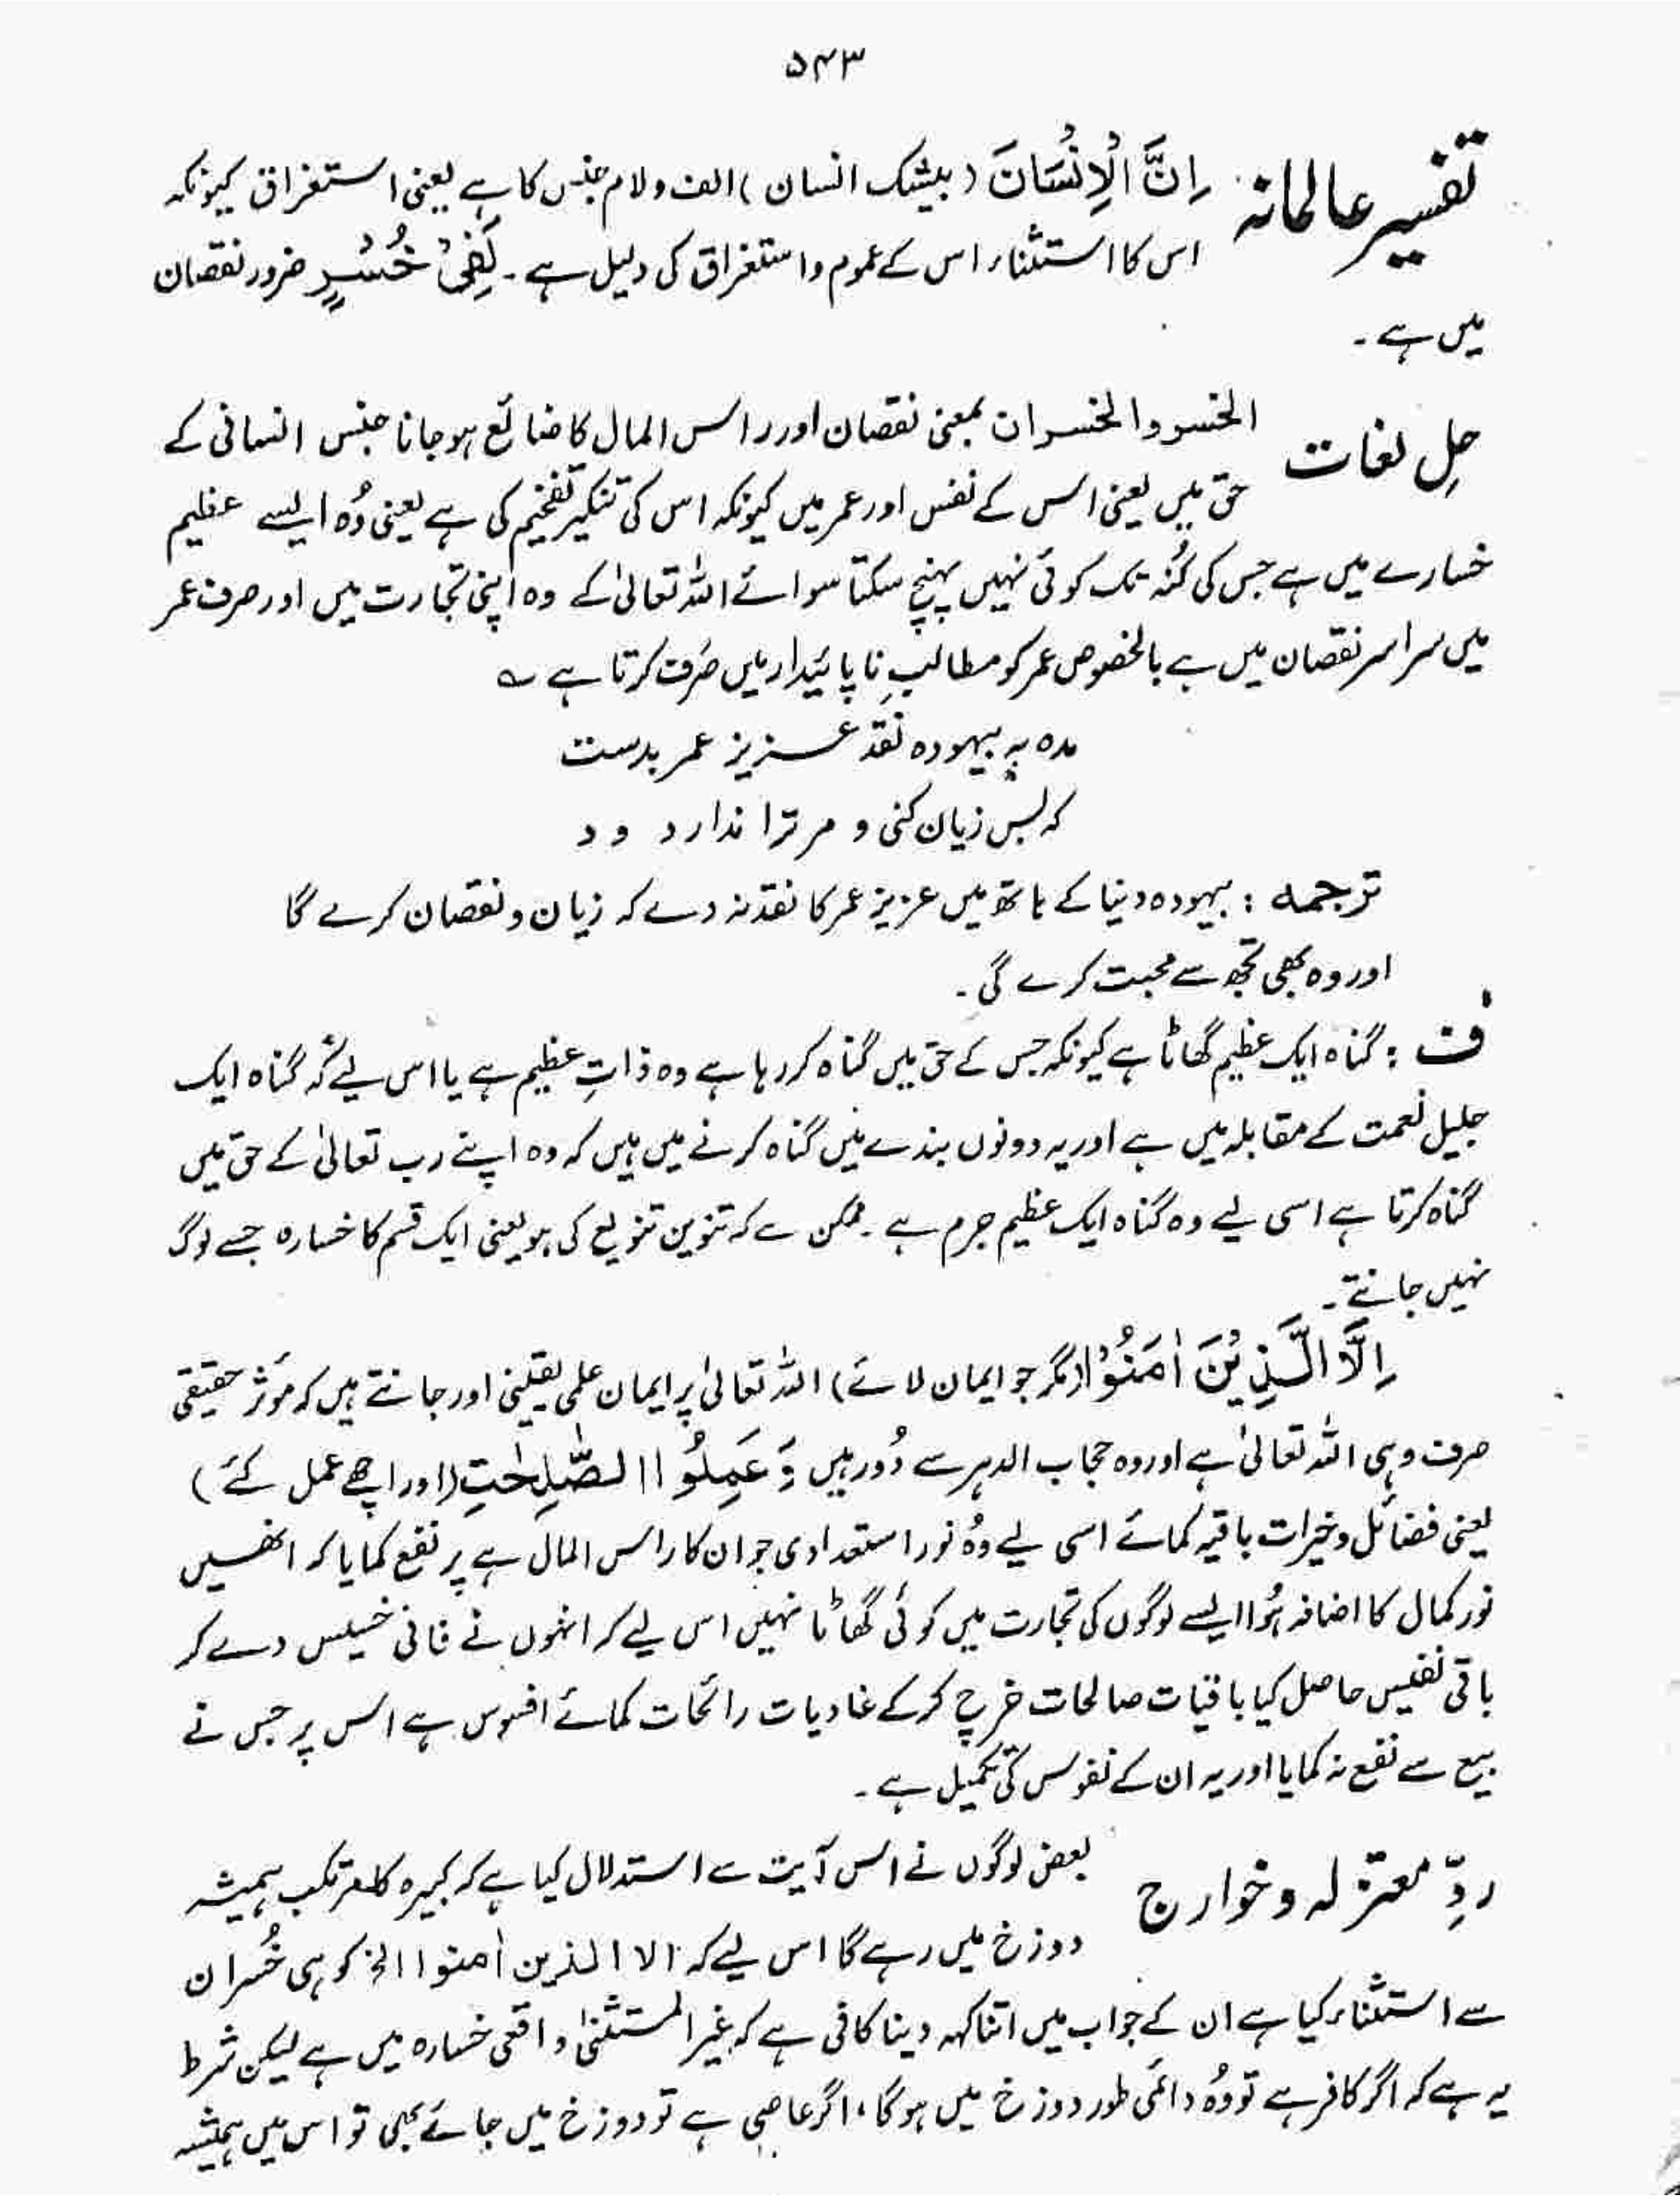 ۵۴۳
تفسیر عالمانہ اِنَّ الْاِنْسَانَ (بیشک انسان) الف و لام جنس کا ہے یعنی استغراق کیونکہ
اس کا استثناء اس کے عموم و استغراق کی دلیل ہے۔ لَفِیْ خُسْرٍ ضرور نقصان
میں ہے۔
حلِ لغات الخسر والخسران بمعنی نقصان اور راس المال کا ضائع ہو جانا جنس انسانی کے
حق میں یعنی اس کے نفس اور عمر میں کیونکہ اس کی تنکیر تفخیم کی ہے یعنی وُہ ایسے عظیم
خسارے میں ہے جس کی کُنہ تک کوئی نہیں پہنچ سکتا سوائے اللہ تعالیٰ کے وہ اپنی تجارت میں اور صرف عمر
میں سراسر نقصان میں ہے بالخصوص عمر کو مطالبِ ناپائیدار میں صَرف کرتا ہے ؎
مدہ بہ بیہودہ نقد عزیز عمر بدست
کہ بس زیان کنی و مر ترا ندارد ود
ترجمہ : بیہودہ دنیا کے ہاتھ میں عزیز عمر کا نقد نہ دے کہ زیان و نقصان کرے گا
اور وہ بھی تجھ سے محبت کرے گی۔
ف : گناہ ایک عظیم گھاٹا ہے کیونکہ جس کے حق میں گناہ کر رہا ہے وہ ذاتِ عظیم ہے یا اس لیے کہ گناہ ایک
جلیل نعمت کے مقابلہ میں ہے اور یہ دونوں بندے میں گناہ کرنے میں ہیں کہ وہ اپنے رب تعالیٰ کے حق میں
گناہ کرتا ہے اسی لیے وہ گناہ ایک عظیم جرم ہے ۔ ممکن ہے کہ تنوین تنویع کی ہو یعنی ایک قسم کا خسارہ جسے لوگ
نہیں جانتے۔
اِلَّا الَّذِیْنَ اٰمَنُوْا (مگر جو ایمان لائے) اللہ تعالیٰ پر ایمان علمی یقینی اور جانتے ہیں کہ مؤثر حقیقی
صرف وہی اللہ تعالیٰ ہے اور وہ حجاب الدہر سے دُور ہیں وَ عَمِلُوا الصّٰلِحٰتِ (اور اچھے عمل کئے)
یعنی فضائل و خیرات باقیہ کمائے اسی لیے وُہ نور استعدادی جو ان کا راس المال ہے پر نفع کمایا کہ انھیں
نور کمال کا اضافہ ہُوا ایسے لوگوں کی تجارت میں کوئی گھاٹا نہیں اس لیے کہ انہوں نے فانی خسیس دے کر
باقی نفیس حاصل کیا باقیات صالحات خرچ کرکے غادیات رائحات کمائے افسوس ہے اس پر جس نے
بیع سے نفع نہ کمایا اور یہ ان کے نفوس کی تکمیل ہے۔
ردِّ معتزلہ و خوارج بعض لوگوں نے اس آیت سے استدلال کیا ہے کہ کبیرہ کا مرتکب ہمیشہ
دوزخ میں رہے گا اس لیے کہ الا الذین اٰمنوا الخ کو ہی خُسران
سے استثناء کیا ہے ان کے جواب میں اتنا کہہ دینا کافی ہے کہ غیر المستثنیٰ واقعی خسارہ میں ہے لیکن شرط
یہ ہے کہ اگر کافر ہے تو وُہ دائمی طور دوزخ میں ہوگا، اگر عاصی ہے تو دوزخ میں جائے بھی تو اس میں ہمیشہ